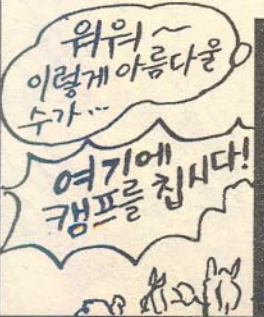 워워~
이렇게 아름다울
수가...
여기에
캠프를 칩시다!